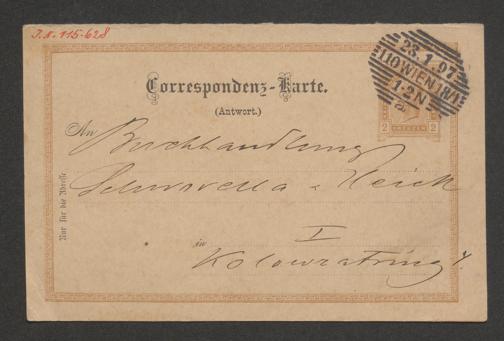 J. N. 115-628
23.1.97
110 WIEN 18/1
1-2N
2 2
Correspondenz-Karte.
(Antwort.)
An Buchhandlung
Schworella & Heick
in I
Kolowratring 4.
Nur für die Adresse